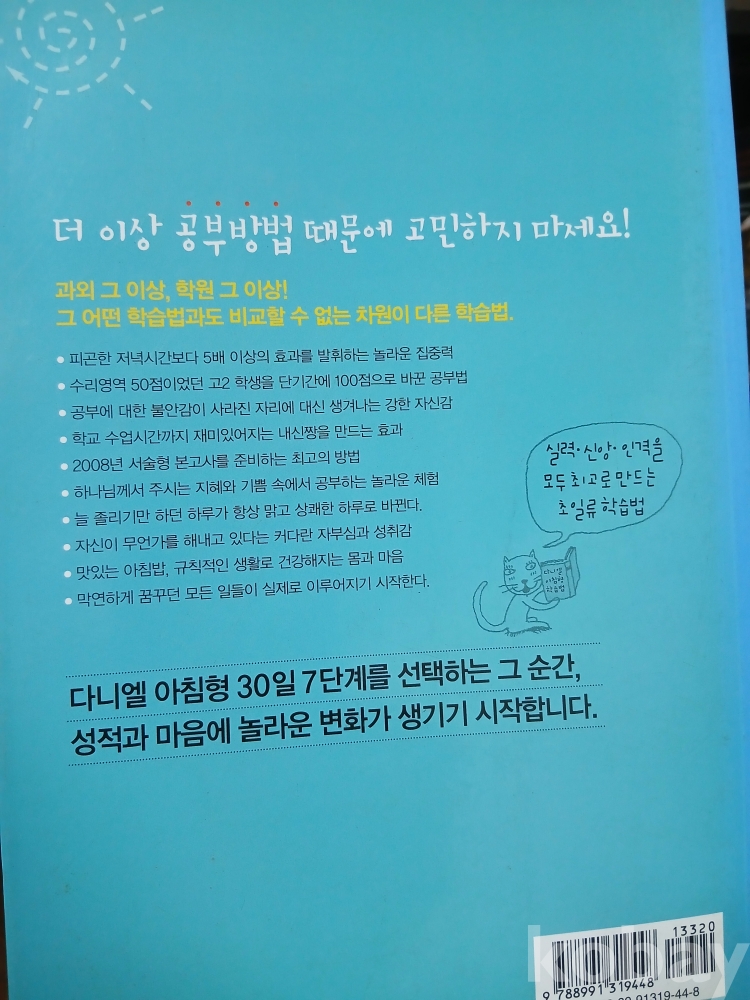 더 이상 공부방법 때문에 고민하지 마세요!
과외 그 이상, 학원 그 이상!
그 어떤 학습법과도 비교할 수 없는 차원이 다른 학습법.
• 피곤한 저녁시간보다 5배 이상의 효과를 발휘하는 놀라운 집중력
• 수리영역 50점이었던 고2 학생을 단기간에 100점으로 바꾼 공부법
• 공부에 대한 불안감이 사라진 자리에 대신 생겨나는 강한 자신감
• 학교 수업시간까지 재미있어지는 내신짱을 만드는 효과
• 2008년 서술형 본고사를 준비하는 최고의 방법
• 하나님께서 주시는 지혜와 기쁨 속에서 공부하는 놀라운 체험
• 늘 졸리기만 하던 하루가 항상 맑고 상쾌한 하루로 바뀐다.
• 자신이 무언가를 해내고 있다는 커다란 자부심과 성취감
• 맛있는 아침밥, 규칙적인 생활로 건강해지는 몸과 마음
• 막연하게 꿈꾸던 모든 일들이 실제로 이루어지기 시작한다.
실력·신앙·인격을
모두 최고로 만드는
초일류 학습법
다니엘
아침형
학습법
다니엘 아침형 30일 7단계를 선택하는 그 순간,
성적과 마음에 놀라운 변화가 생기기 시작합니다.
13320
9 788991 319448
91319-44-8
kobay